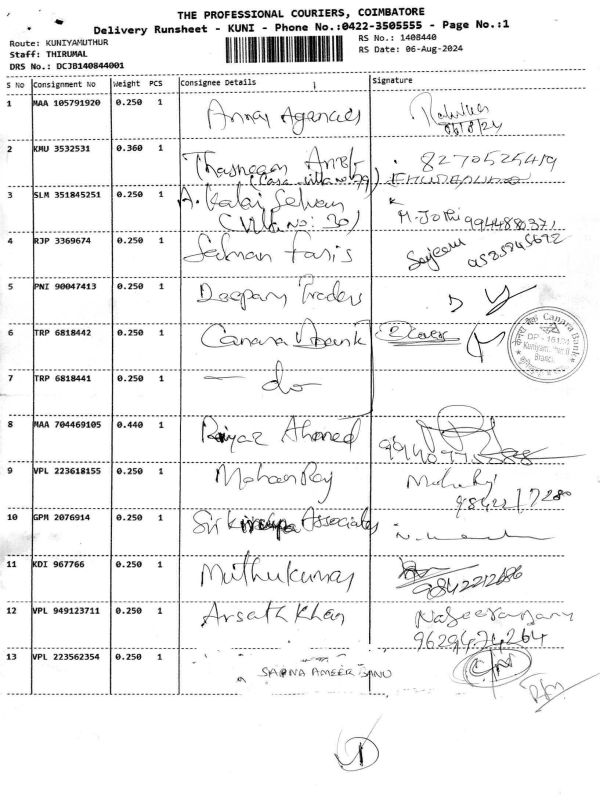 THE PROFESSIONAL COURIERS, COIMBATORE
Delivery Runsheet - KUNI - Phone No.:0422-3505555 - Page No.:1
Route: KUNIYAMUTHUR
Staff: THIRUMAL
DRS No.: DCJB140844001
RS No.: 1408440
RS Date: 06-Aug-2024
S No Consignment No Weight PCS Consignee Details Signature
1 MAA 105791920 0.250 1 Annai Agencies
06/8/24
2 KMU 3532531 0.360 1
3 SLM 351845251 0.250 1 A. Kalai Selvan
(Villa No: 30) M. Jothi
4 RJP 3369674 0.250 1 Salman Faris
5 PNI 90047413 0.250 1 Deepam Traders
6 TRP 6818442 0.250 1 Canara Bank 2 Cover
Canara Bank
DP - 16124
Branch
7 TRP 6818441 0.250 1 — do —
8 MAA 704469105 0.440 1 Riyaz Ahamed
9 VPL 223618155 0.250 1 Mohan Raj
98422 17280
10 GPM 2076914 0.250 1 Sri Associates
11 KDI 967766 0.250 1 Muthukumar
9842212686
12 VPL 949123711 0.250 1 Arsath Khan
9629474264
13 VPL 223562354 0.250 1 SAPNA AMEER BANU